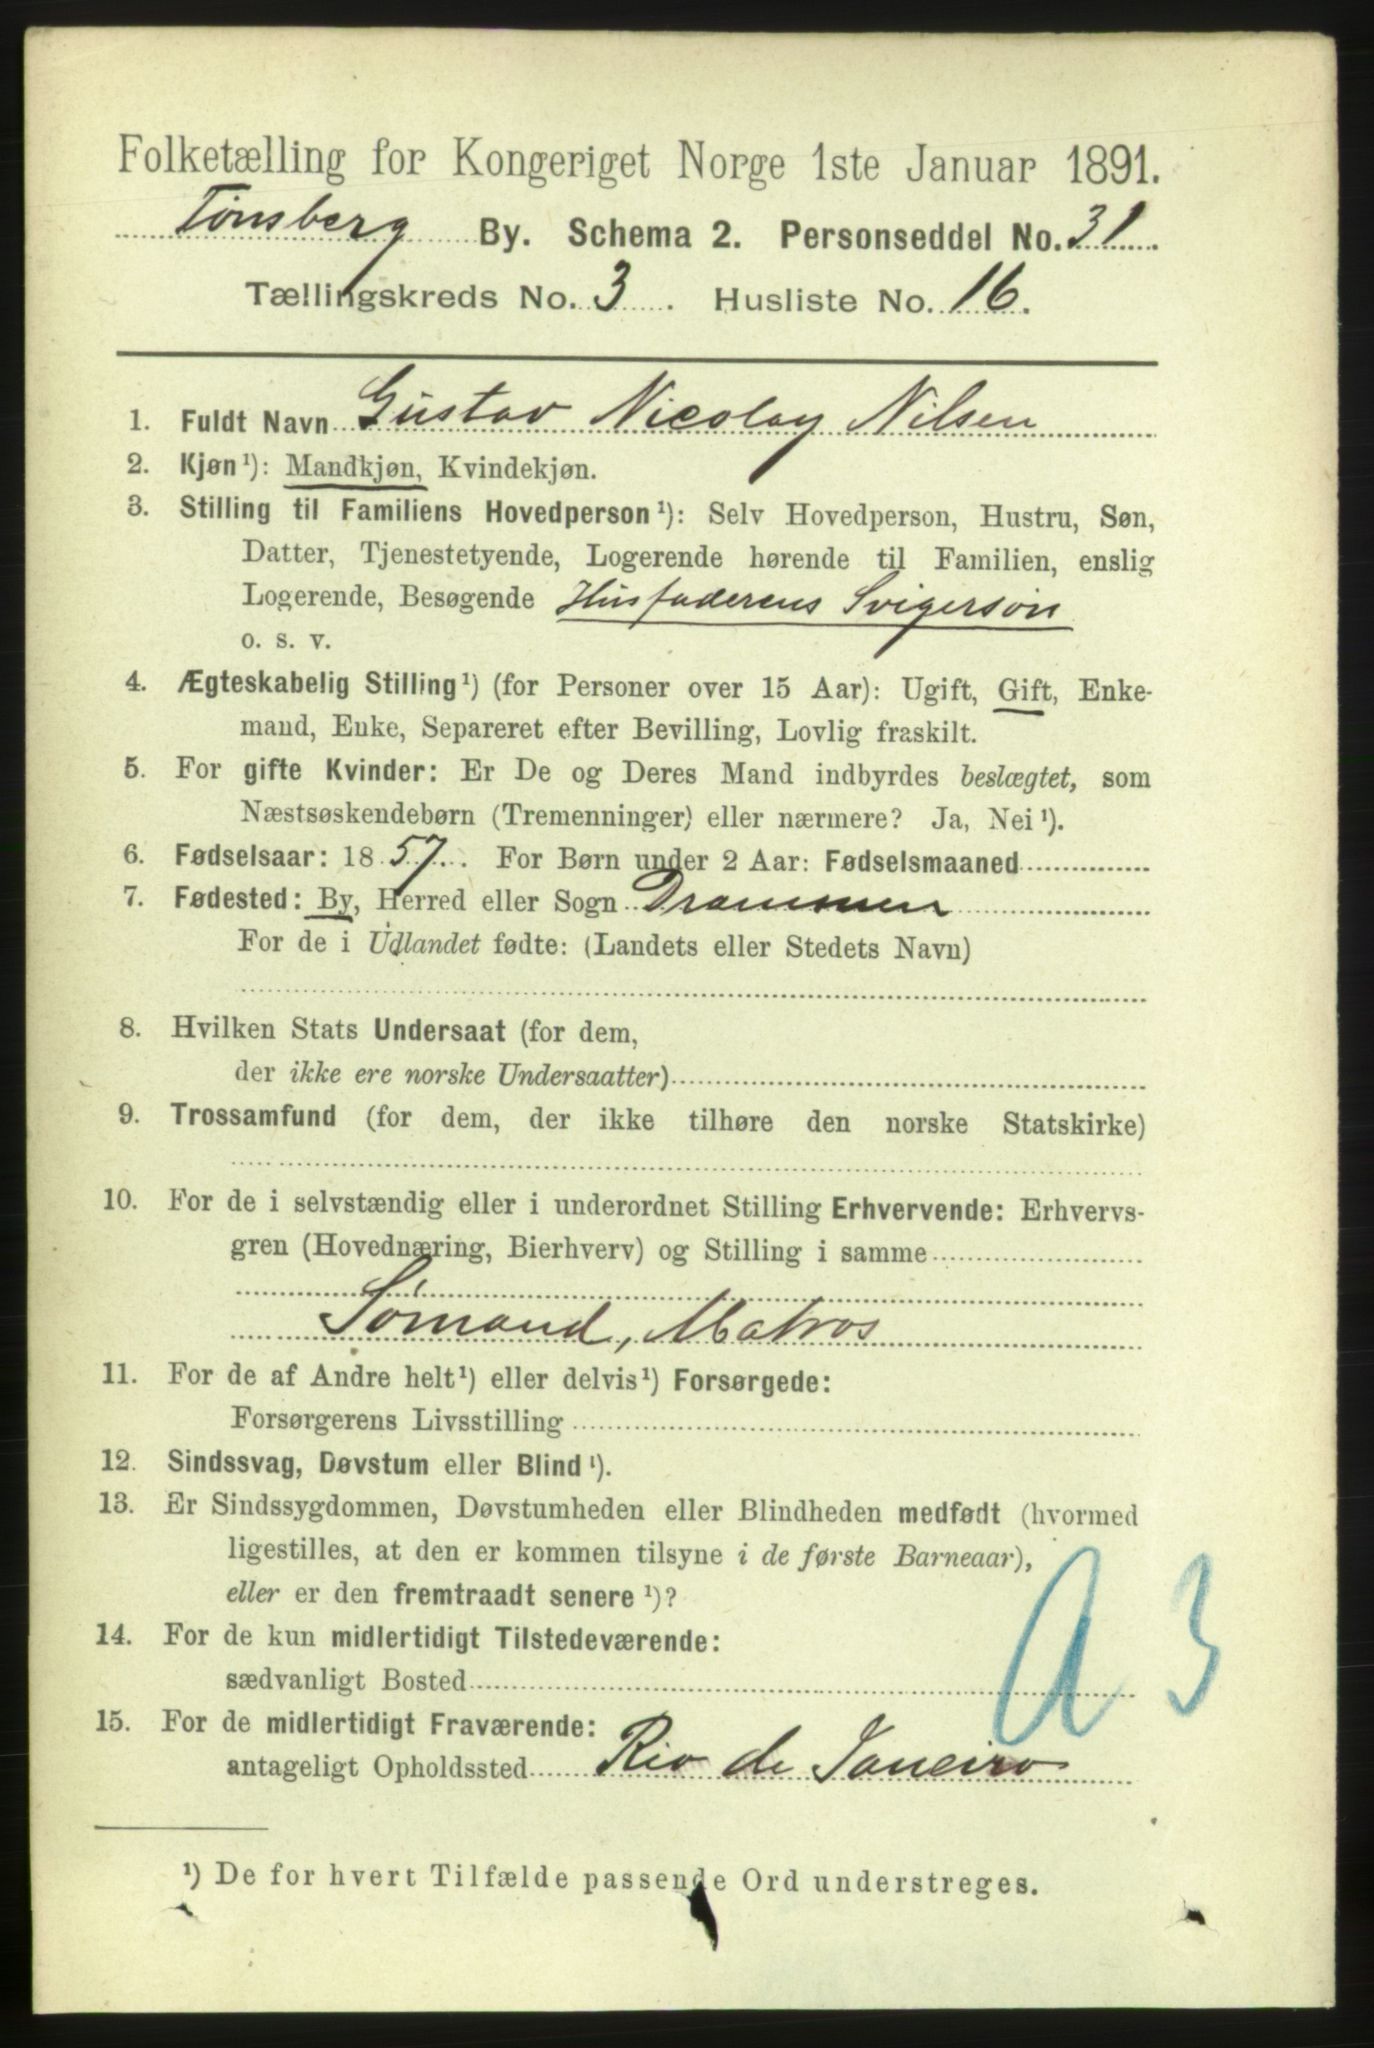 Folketælling for Kongeriget Norge 1ste Januar 1891.
Tønsberg By. Schema 2. Personseddel No. 31.
Tællingskreds No. 3. Husliste No. 16.
1. Fuldt Navn Gustav Nicolay Nilsen
2. Kjøn ¹): Mandkjøn, Kvindekjøn.
3. Stilling til Familiens Hovedperson ¹): Selv Hovedperson, Hustru, Søn,
Datter, Tjenestetyende, Logerende hørende til Familien, enslig
Logerende, Besøgende Husfaderens Svigersøn
o. s. v.
4. Ægteskabelig Stilling ¹) (for Personer over 15 Aar): Ugift, Gift, Enke-
mand, Enke, Separeret efter Bevilling, Lovlig fraskilt.
5. For gifte Kvinder: Er De og Deres Mand indbyrdes beslægtet, som
Næstsøskendebørn (Tremenninger) eller nærmere? Ja, Nei ¹).
6. Fødselsaar: 1857. For Børn under 2 Aar: Fødselsmaaned
7. Fødested: By, Herred eller Sogn Drammen
For de i Udlandet fødte: (Landets eller Stedets Navn)
8. Hvilken Stats Undersaat (for dem,
der ikke ere norske Undersaatter)
9. Trossamfund (for dem, der ikke tilhøre den norske Statskirke)
10. For de i selvstændig eller i underordnet Stilling Erhvervende: Erhvervs-
gren (Hovednæring, Bierhverv) og Stilling i samme
Sømand, Matros
11. For de af Andre helt ¹) eller delvis ¹) Forsørgede:
Forsørgerens Livsstilling
12. Sindssvag, Døvstum eller Blind ¹).
13. Er Sindssygdommen, Døvstumheden eller Blindheden medfødt (hvormed
ligestilles, at den er kommen tilsyne i de første Barneaar),
eller er den fremtraadt senere ¹)?
14. For de kun midlertidigt Tilstedeværende:
sædvanligt Bosted
15. For de midlertidigt Fraværende:
antageligt Opholdssted Rio de Janeiro
a 3
¹) De for hvert Tilfælde passende Ord understreges.